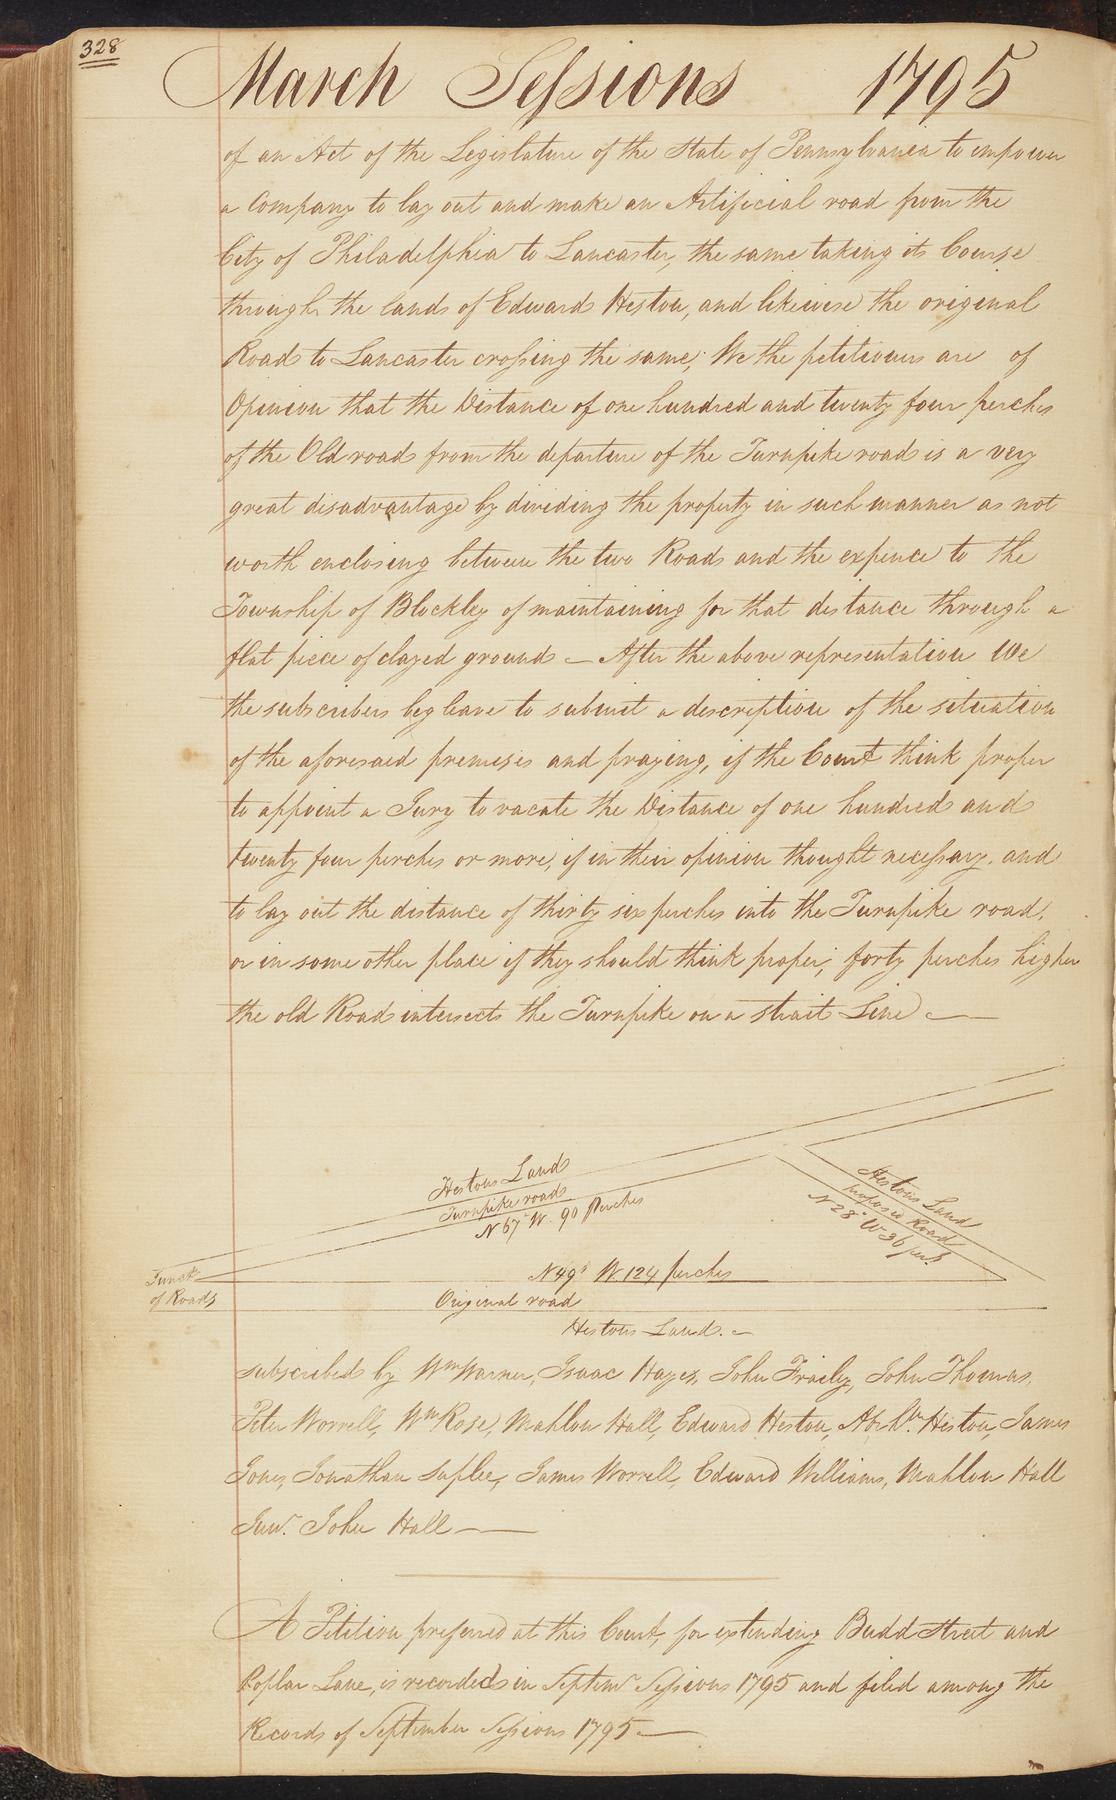 328
March Sessions 1795
of an Act of the Legislature of the State of Pennsylvania to empower
a Company to lay out and make an Artificial road from the
City of Philadelphia to Lancaster, the same taking its Course
through the lands of Edward Heston, and likewise the original
Road to Lancaster crossing the same; We the petitioners are of
Opinion that the Distance of one hundred and twenty four perches
of the Old road from the departure of the Turnpike road is a very
great disadvantage by dividing the property in such manner as not
worth enclosing between the two Roads and the expence to the
Township of Blockley of maintaining for that distance through a
flat piece of clayed ground — After the above representation We
the subscribers beg leave to submit a description of the situation
of the aforesaid premises and praying, if the Court think proper
to appoint a Jury to vacate the Distance of one hundred and
twenty four perches or more, if in their opinion thought necessary, and
to lay out the distance of thirty six perches into the Turnpike road,
or in some other place if they should think proper; forty perches higher
the old Road intersects the Turnpike on a strait Line —
Hestons Land
Turnpike road
N 67° W. 90 Perches
Hestons Land
proposed Road
N 28° W 36 per.s
Junct.
of Roads
N 49° W. 124 perches
Original road
Hestons Land. —
subscribed by Wm Warner, Isaac Hayes, John Frailey, John Thomas,
Peter Worrell, Wm Rose, Mahlon Hall, Edward Heston, Abrhm. Heston, James
Jones, Jonathan Suplee, James Worrell, Edward Williams, Mahlon Hall
Junr. John Hall —
A Petition preferred at this Court, for extending Budd Street and
Poplar Lane, is recorded in Septemr Sessions 1795 and filed among the
Records of September Sessions 1795 —